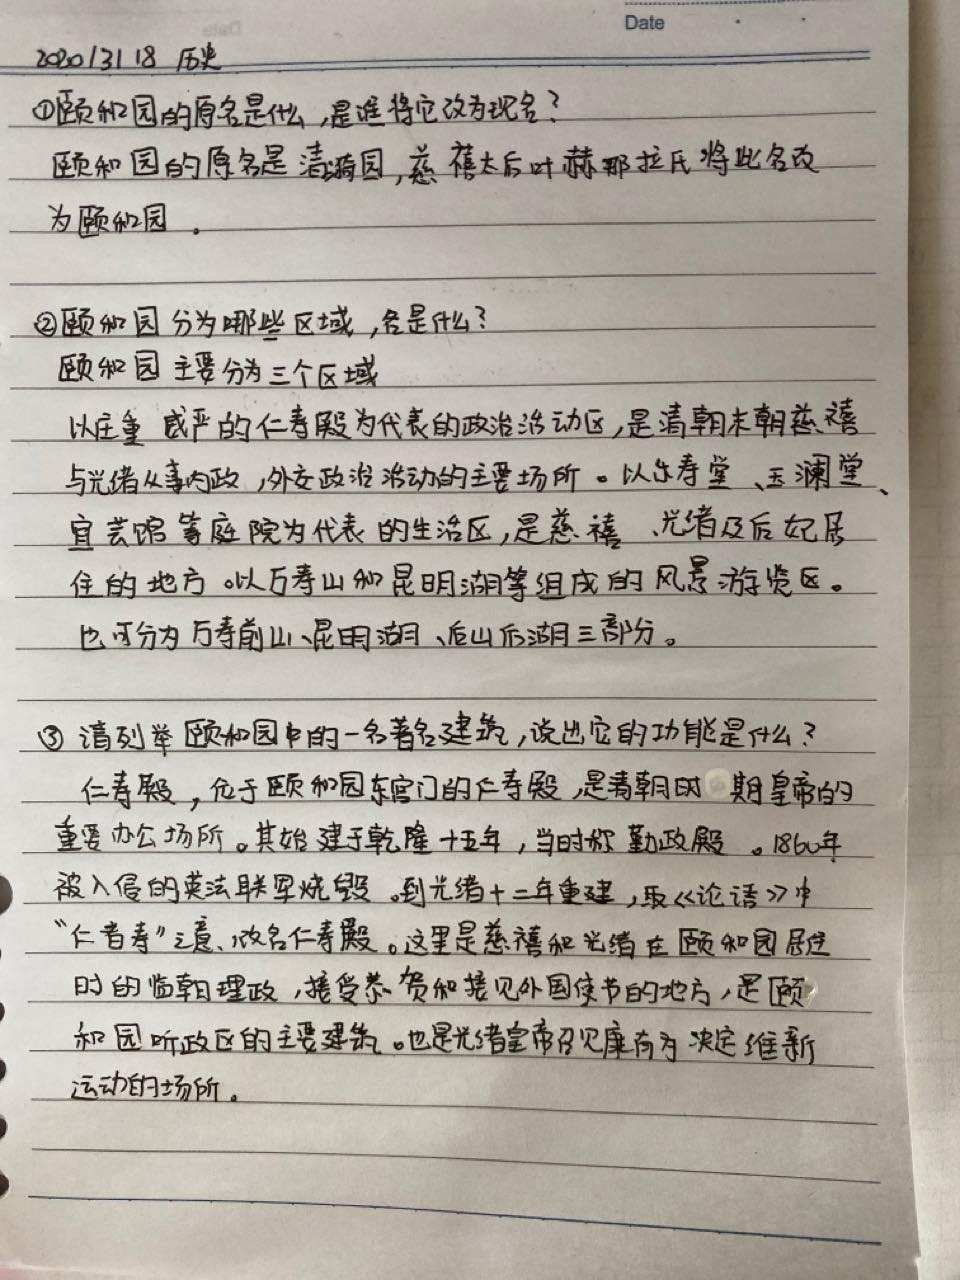 Date
2020/3/18 历史
①颐和园的原名是什么,是谁将它改为现名?
颐和园的原名是清漪园,慈禧太后叶赫那拉氏将此名改
为颐和园。
②颐和园分为哪些区域,各是什么?
颐和园主要分为三个区域
以庄重威严的仁寿殿为代表的政治活动区,是清朝末朝慈禧
与光绪从事内政,外交政治活动的主要场所。以乐寿堂、玉澜堂、
宜芸馆等庭院为代表的生活区,是慈禧、光绪及后妃居
住的地方。以万寿山和昆明湖等组成的风景游览区。
也可分为万寿前山、昆明湖、后山后湖三部分。
③请列举颐和园中的一名著名建筑,说出它的功能是什么?
仁寿殿,位于颐和园东宫门的仁寿殿,是清朝时期皇帝的
重要办公场所。其始建于乾隆十五年,当时称勤政殿。1860年
被入侵的英法联军烧毁。到光绪十二年重建,取《论语》中
“仁者寿”之意、改名仁寿殿。这里是慈禧和光绪在颐和园居住
时的临朝理政,接受恭贺和接见外国使节的地方,是颐
和园听政区的主要建筑。也是光绪皇帝召见康有为决定维新
运动的场所。